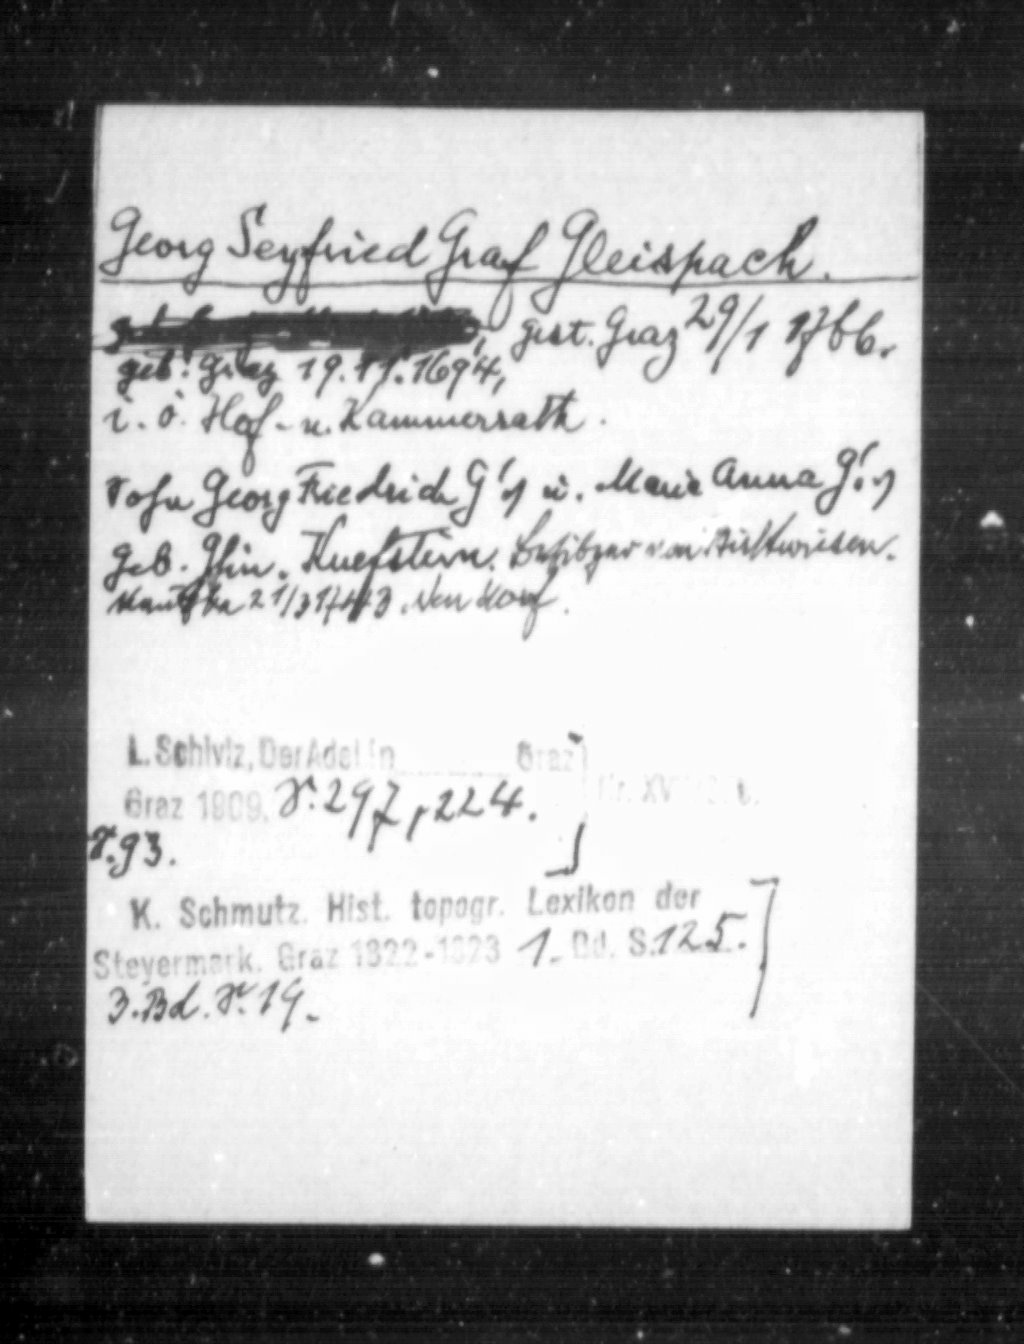 Georg Seyfried Graf Gleispach.
gest. Graz 29/1 1766.
geb. Graz 19.11.1694,
i. ö. Hof- u. Kammerrath.
Sohn Georg Friedrich G's u. Maria Anna G's
geb. Khuefstein. Besitzer von
21/3 1743.
L. Schiviz, Der Adel in Graz
Graz 1909. S. 297, 224.
S. 93.
K. Schmutz. Hist. topogr. Lexikon der
Steyermark. Graz 1822-1823 1. Bd. S. 125.
3. Bd. S. 19.